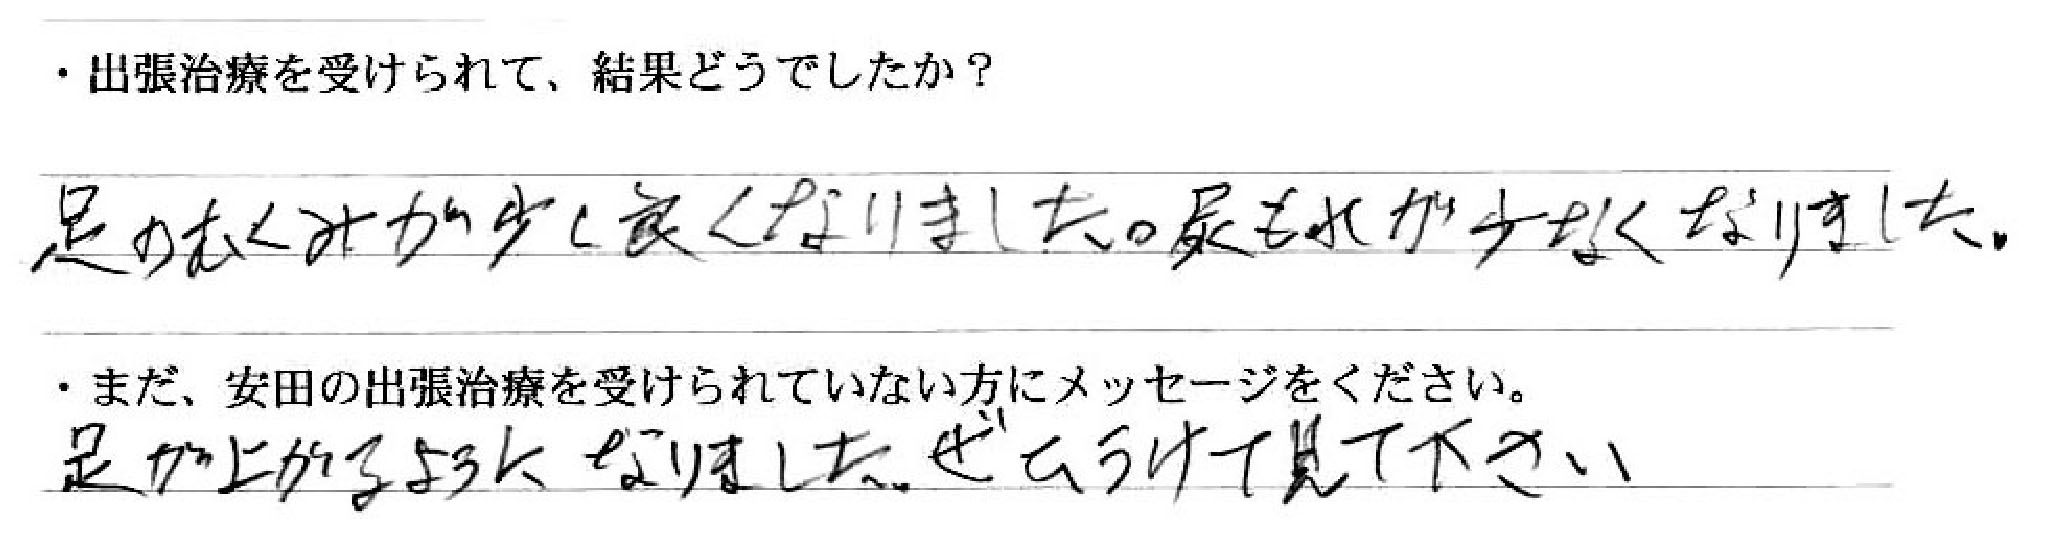 ・出張治療を受けられて、結果どうでしたか？
足のむくみが少し良くなりました。尿もれが少なくなりました。
・まだ、安田の出張治療を受けられていない方にメッセージをください。
足が上がるようになりました。ぜひうけて見て下さい